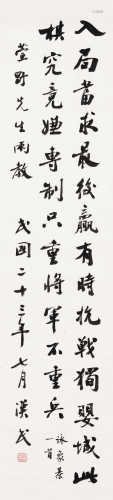 入局當求最後贏有時抗戰獨嬰城此
棋究竟嫌專制只重將軍不重兵
詠象棋
一首
萱野先生兩教
民國二十三年七月 漢民